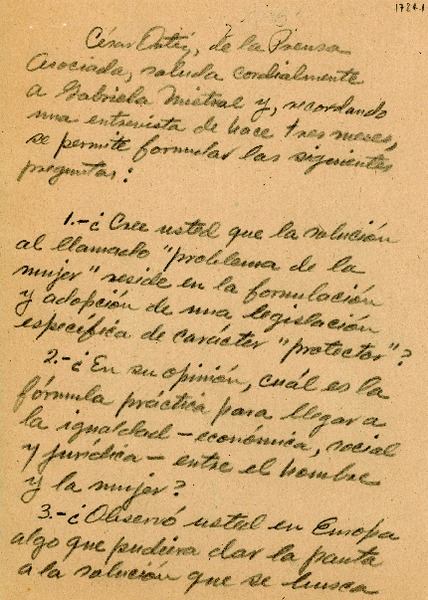 1724.1
César Ortiz, de la Prensa
Asociada, saluda cordialmente
a Gabriela Mistral y, recordando
una entrevista de hace tres meses,
se permite formular las siguientes
preguntas:
1.-¿Cree usted que la solución
al llamado "problema de la
mujer" reside en la formulación
y adopción de una legislación
específica de carácter "protector"?
2.-¿En su opinión, cuál es la
fórmula práctica para llegar a
la igualdad - económica, social
y jurídica - entre el hombre
y la mujer?
3.-¿Observó usted en Europa
algo que pudiera dar la pauta
a la solución que se busca